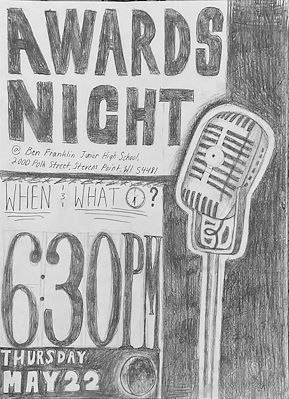 AWARDS
NIGHT
@ Ben Franklin Junior High School,
2000 Polk Street, Stevens Point, WI 54481
WHEN & WHAT ?
6:30 PM
THURSDAY
MAY 22